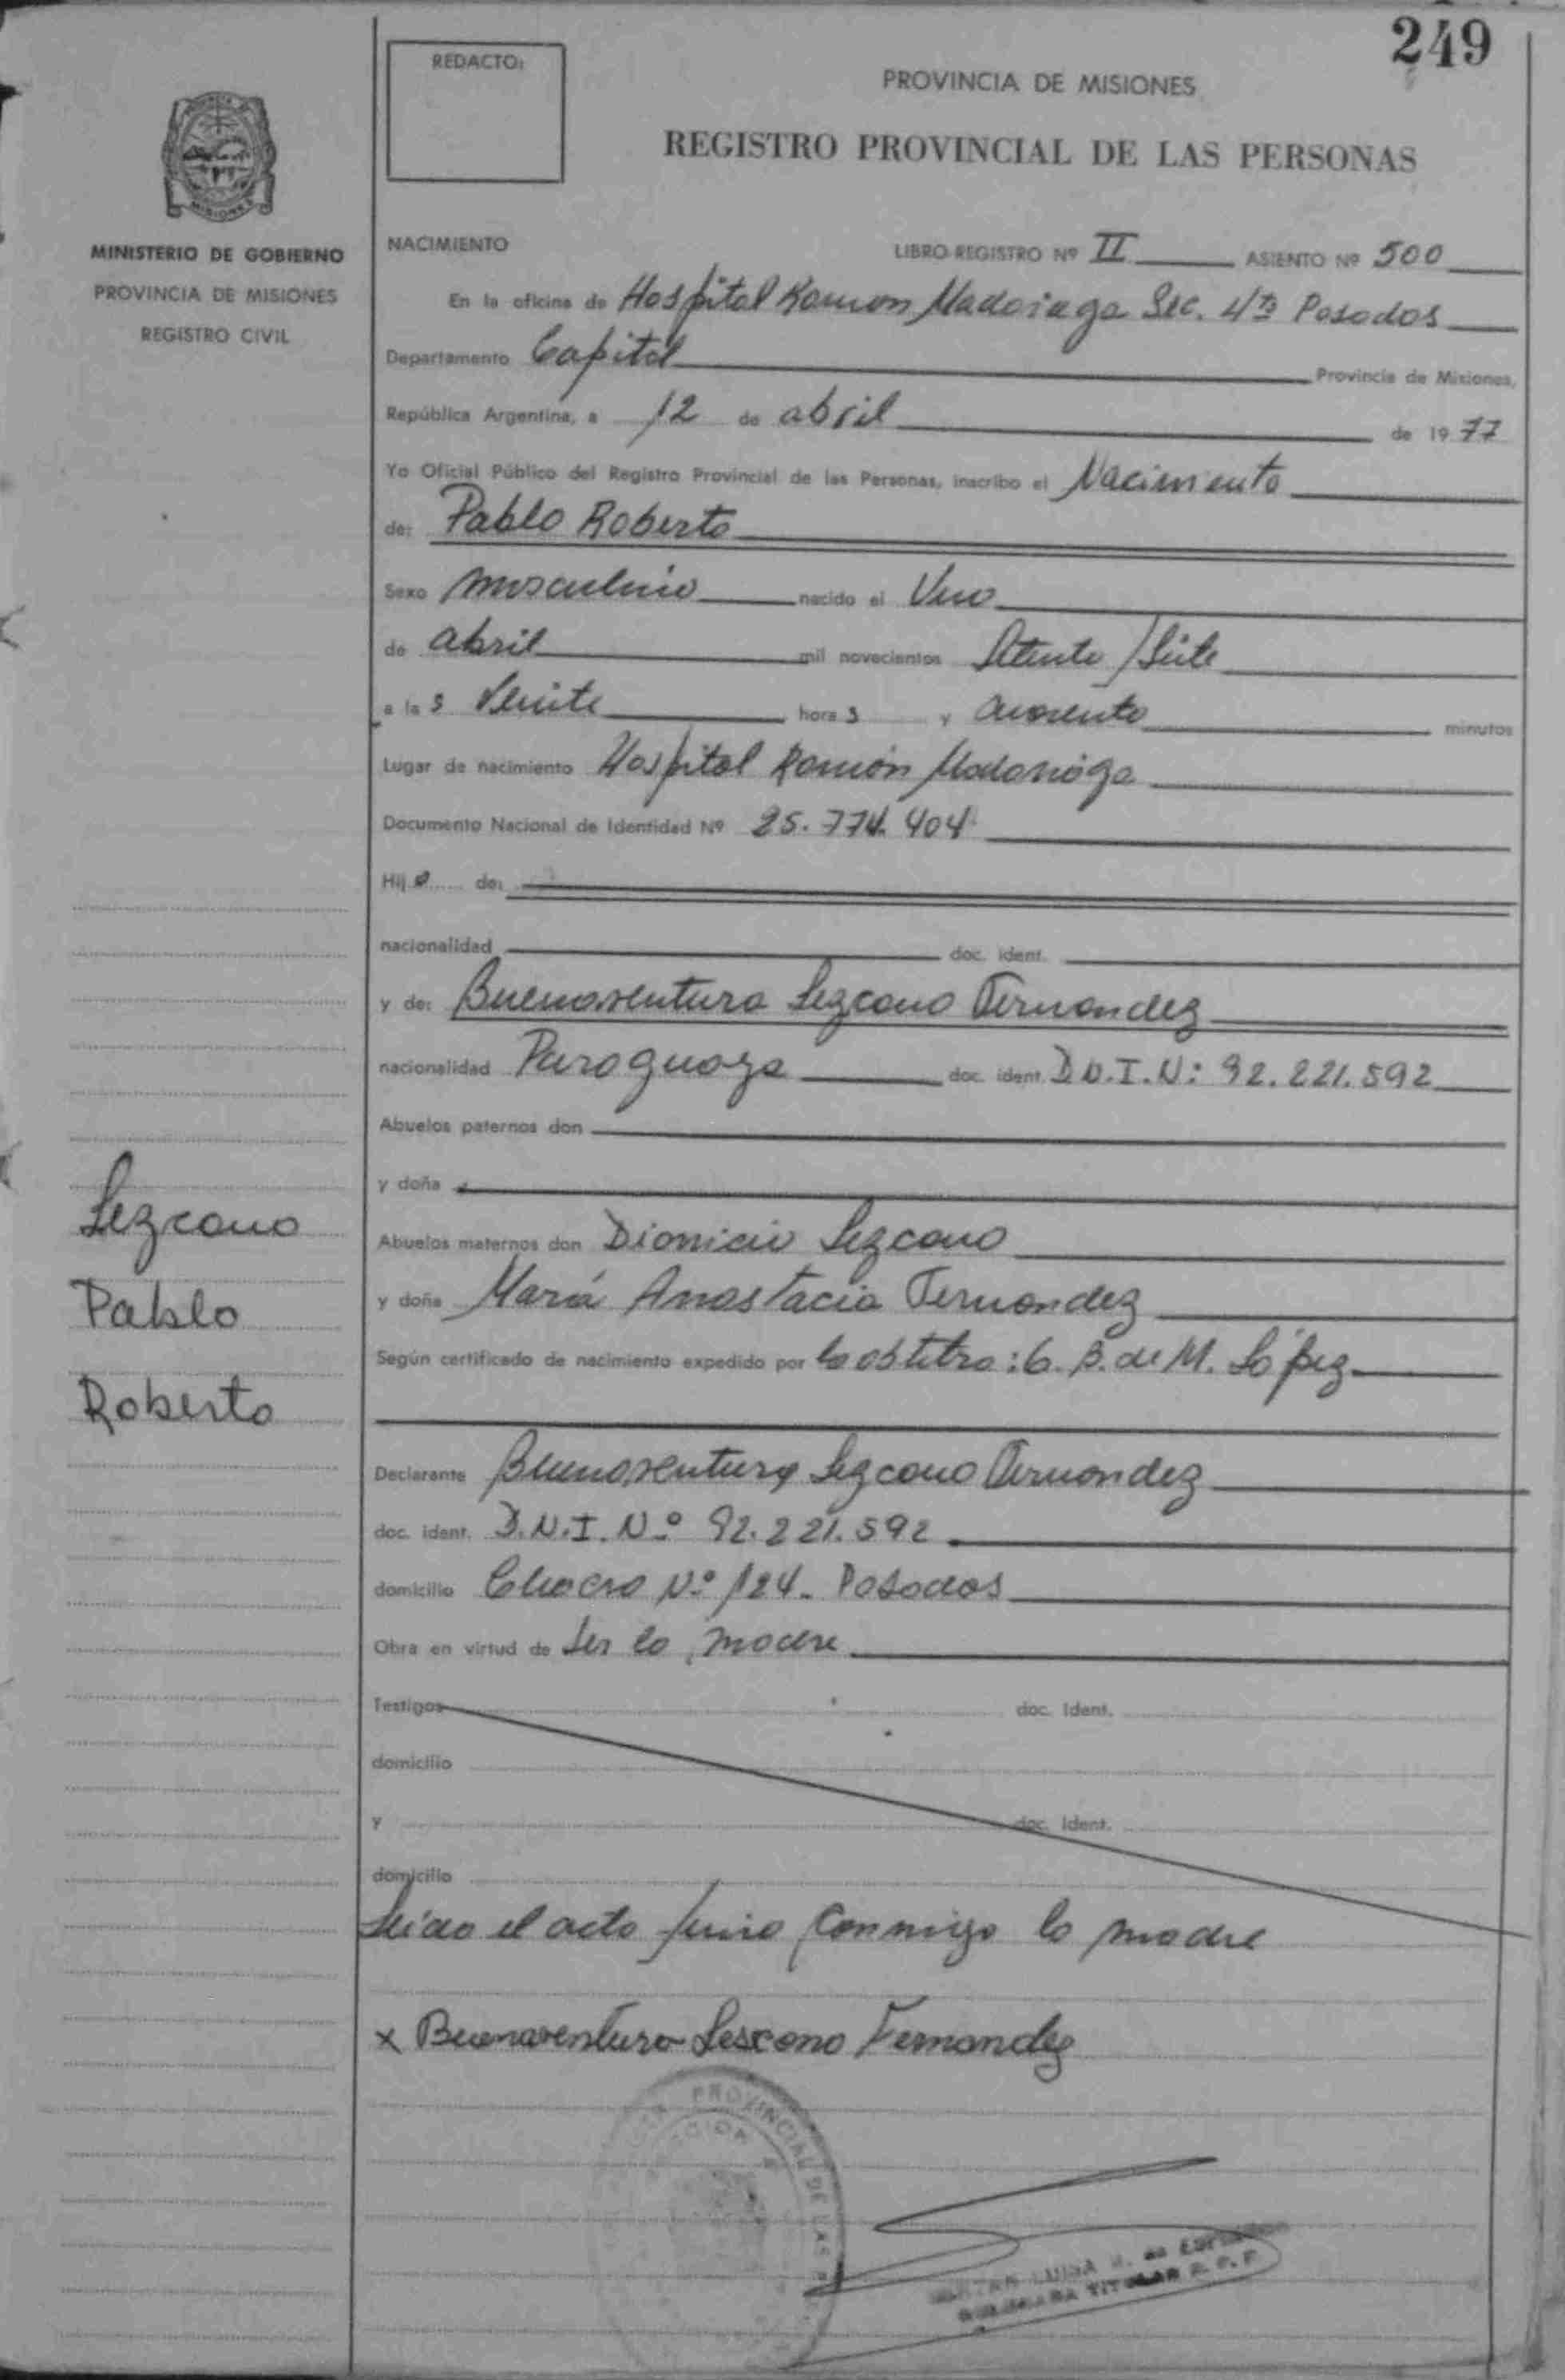 249
REDACTO:
PROVINCIA DE MISIONES
REGISTRO PROVINCIAL DE LAS PERSONAS
MISIONES
MINISTERIO DE GOBIERNO
PROVINCIA DE MISIONES
REGISTRO CIVIL
NACIMIENTO LIBRO REGISTRO Nº II ASIENTO Nº 500
En la oficina de Hospital Ramon Madariaga Sec. 4ta Posadas
Departamento Capital Provincia de Misiones,
República Argentina, a 12 de abril de 1977
Yo Oficial Público del Registro Provincial de las Personas, inscribo el Nacimiento
de: Pablo Roberto
Sexo masculino nacido el Uno
de abril mil novecientos Setenta y Siete
a las Veinte horas y cuarenta minutos
Lugar de nacimiento Hospital Ramón Madariaga
Documento Nacional de Identidad Nº 25.774.404
Hijo de:
nacionalidad doc. ident.
y de: Buenaventura Lezcano Fernandez
nacionalidad Paraguaya doc. ident. D.N.I.N: 92.221.592
Abuelos paternos don
y doña
Abuelos maternos don Dionicio Lezcano
y doña María Anastacia Fernandez
Según certificado de nacimiento expedido por la obstetra: B. de M. López
Lezcano
Pablo
Roberto
Declarante Buenaventura Lezcano Fernandez
doc. ident. D.N.I. Nº 92.221.592
domicilio Chacra Nº 124. Posadas
Obra en virtud de ser la madre
Testigos doc. Ident.
domicilio
y doc. Ident.
domicilio
Leída el acta firma conmigo la madre
x Buenaventura Lescano Fernandez
PROVINCIAL DE LAS
LUISA
TITULAR R. P. P.